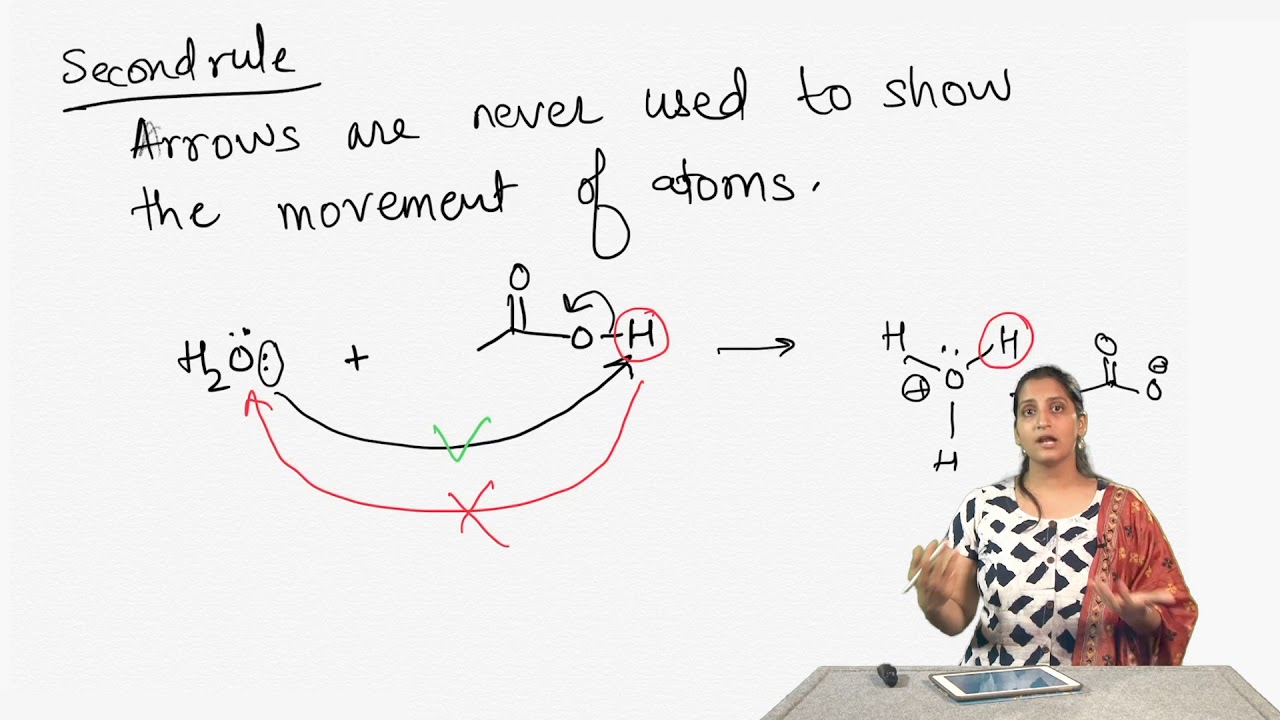 Second rule
Arrows are never used to show
the movement of atoms.
O
H₂Ö: + O-H → H Ö H O O⊖
⊕
H